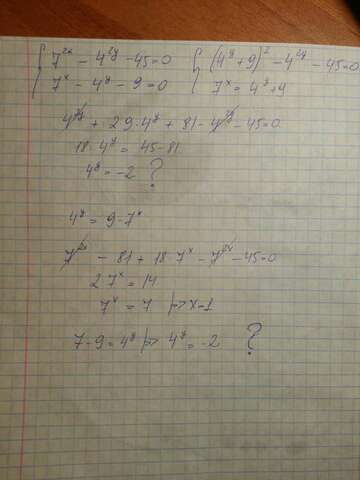 7^{2x} - 4^{2y} - 45 = 0   (4^y + 9)^2 - 4^{2y} - 45 = 0
7^x - 4^y - 9 = 0   7^x = 4^y + 9
4^{2y} + 2 9·4^y + 81 - 4^{2y} - 45 = 0
18·4^y = 45 - 81
4^y = -2 ?
4^y = 9 - 7^x
7^{2x} - 81 + 18 7^x - 7^{2x} - 45 = 0
2 7^x = 14
7^x = 7 |=> x = 1
7 - 9 = 4^y |=> 4^y = -2 ?